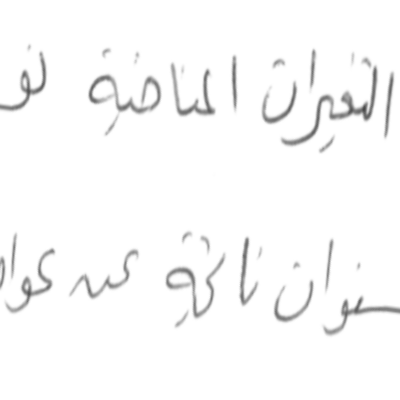 التغيرات المناخية
سنوات ناتجة عن